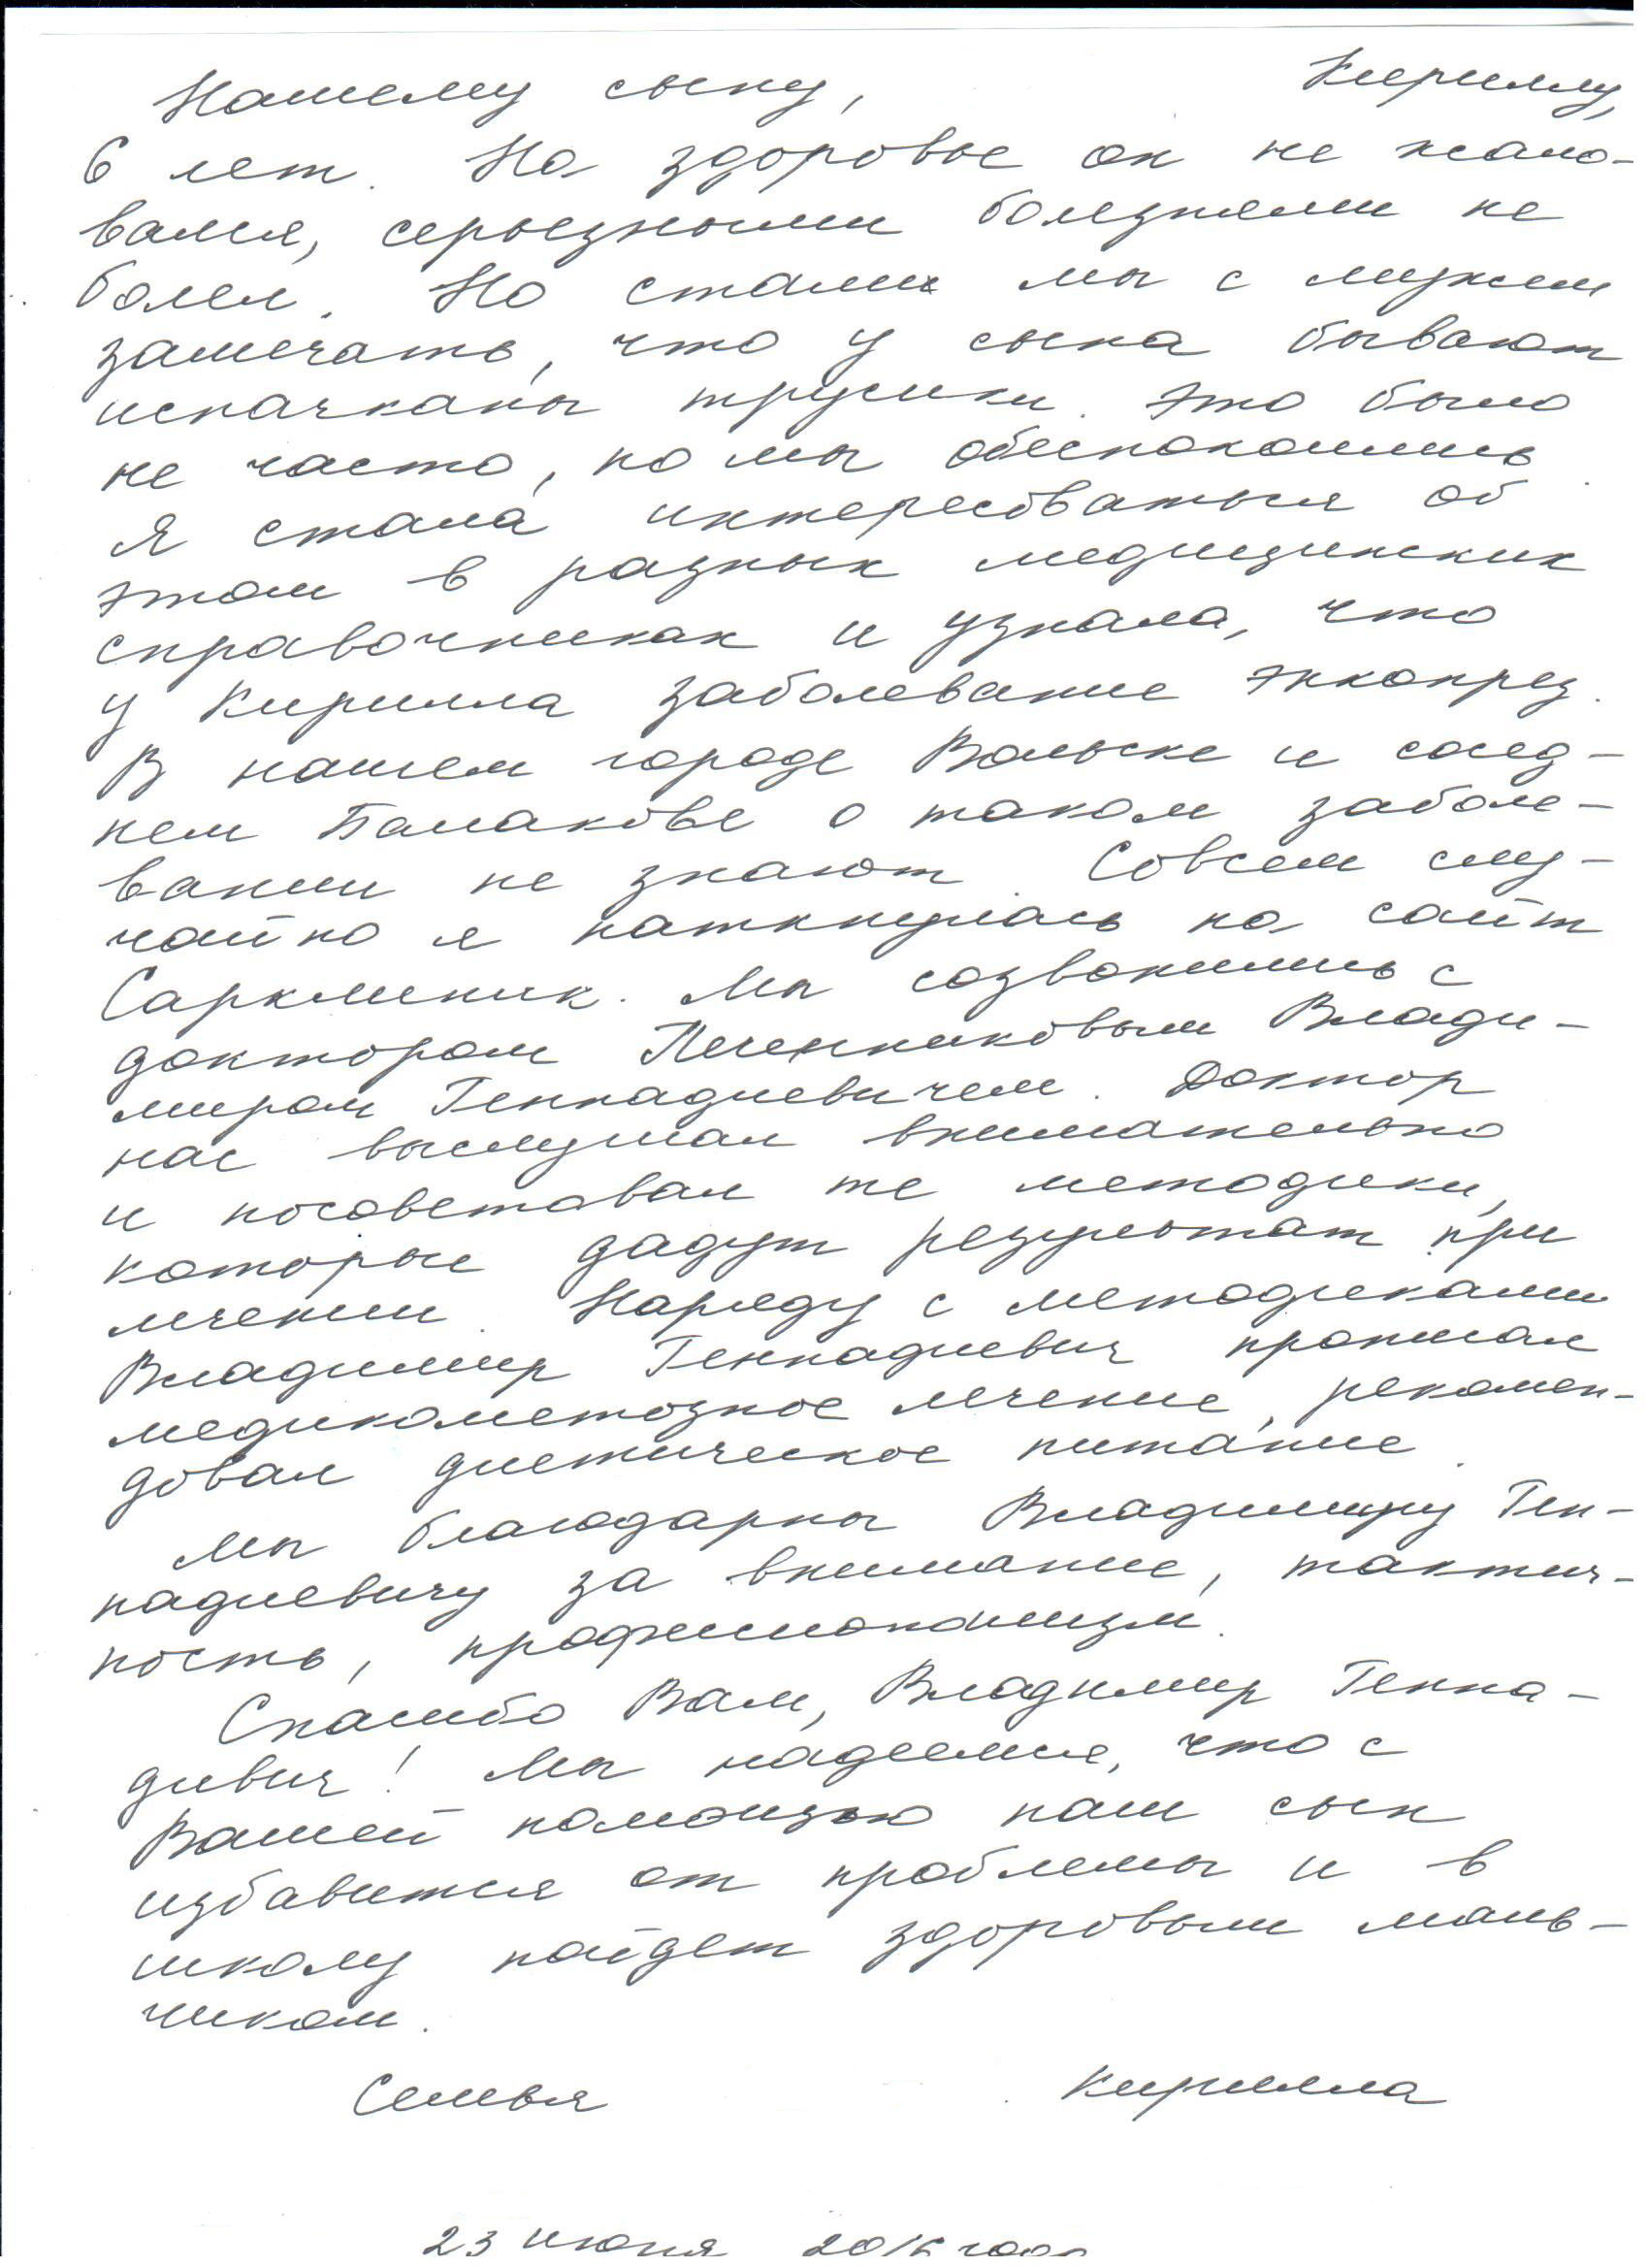 Нашему сыну, Кириллу,
6 лет. На здоровье он не жало-
вался, серьезными болезнями не
болел. Но стали мы с мужем
замечать, что у сына бывают
испачканы трусики. Это было
не часто, но мы обеспокоились.
Я стала интересоваться об
этом в разных медицинских
справочниках и узнала, что
у Кирилла заболевание энкопрез.
В нашем городе Вольске и сосед-
нем Балакове о таком заболе-
вании не знают. Совсем слу-
чайно я наткнулась на сайт
Сарклиник. Мы созвонились с
доктором Печенниковым Влади-
миром Геннадиевичем. Доктор
нас выслушал внимательно
и посоветовал те методики,
которые дадут результат при
лечении. Наряду с методиками
Владимир Геннадиевич прописал
медикаметозное лечение, рекомен-
довал диетическое питание.
Мы благодарны Владимиру Ген-
надиевичу за внимание, тактич-
ность, профессионализм.
Спасибо Вам, Владимир Генна-
дивич! Мы надеемся, что с
Вашей помощью наш сын
избавится от проблемы и в
школу пойдет здоровым маль-
чиком.
Семья Кирилла
23 июня 2016 года